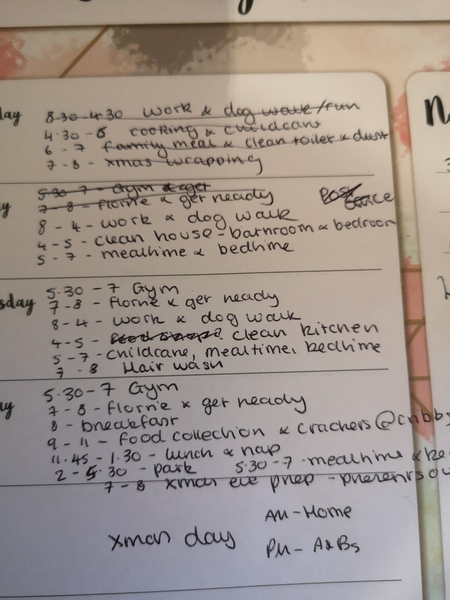 day
8.30-4.30 work & dog walk/run
4.30-6 cooking & childcare
6-7 family meal & clean toilet & dust
7-8 - xmas wrapping
5.30-7 - Gym & get
7-8 - florrie & get ready
8-4 - work & dog walk
4-5 - clean house - bathroom & bedroom
5-7 - mealtime & bedtime
sday
5.30-7 Gym
7-8 - florrie & get ready
8-4 - work & dog walk
4-5 - clean kitchen
5-7 - childcare, mealtime, bedtime
7-8 Hair wash
5.30-7 Gym
7-8 - florrie & get ready
8 - breakfast
9-11 - food collection & crackers @
11.45-1.30 - lunch & nap
2-5.30 - park 5.30-7 - mealtime & be
7-8 xmas eve prep - presents ou
xmas day
AM - Home
PM - A&Bs